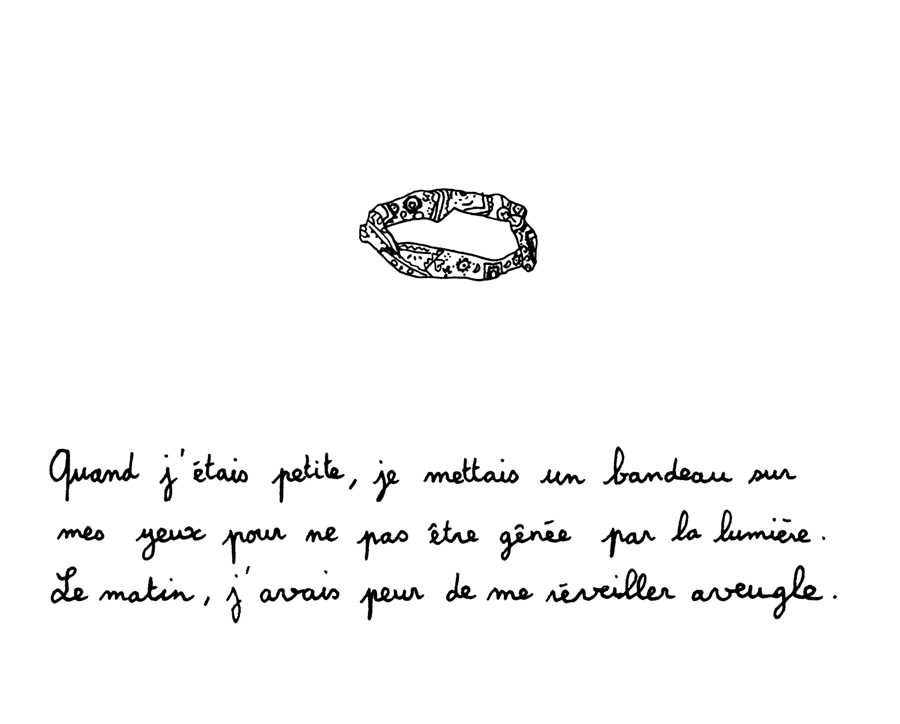 Quand j'étais petite, je mettais un bandeau sur
mes yeux pour ne pas être gênée par la lumière.
Le matin, j'avais peur de me réveiller aveugle.